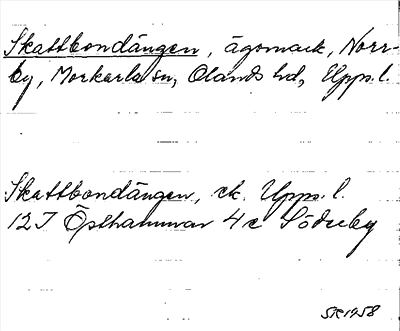 Skattbondängen, ägomark, Norr-
by, Morkarla sn, Olands hd, Upps. l.
Skattbondängen, ek. Upps. l.
12I Östhammar 4c Söderby
SK 1958